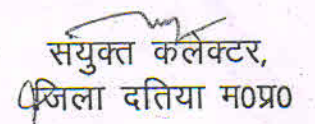 संयुक्त कलेक्टर,
जिला दतिया म0प्र0